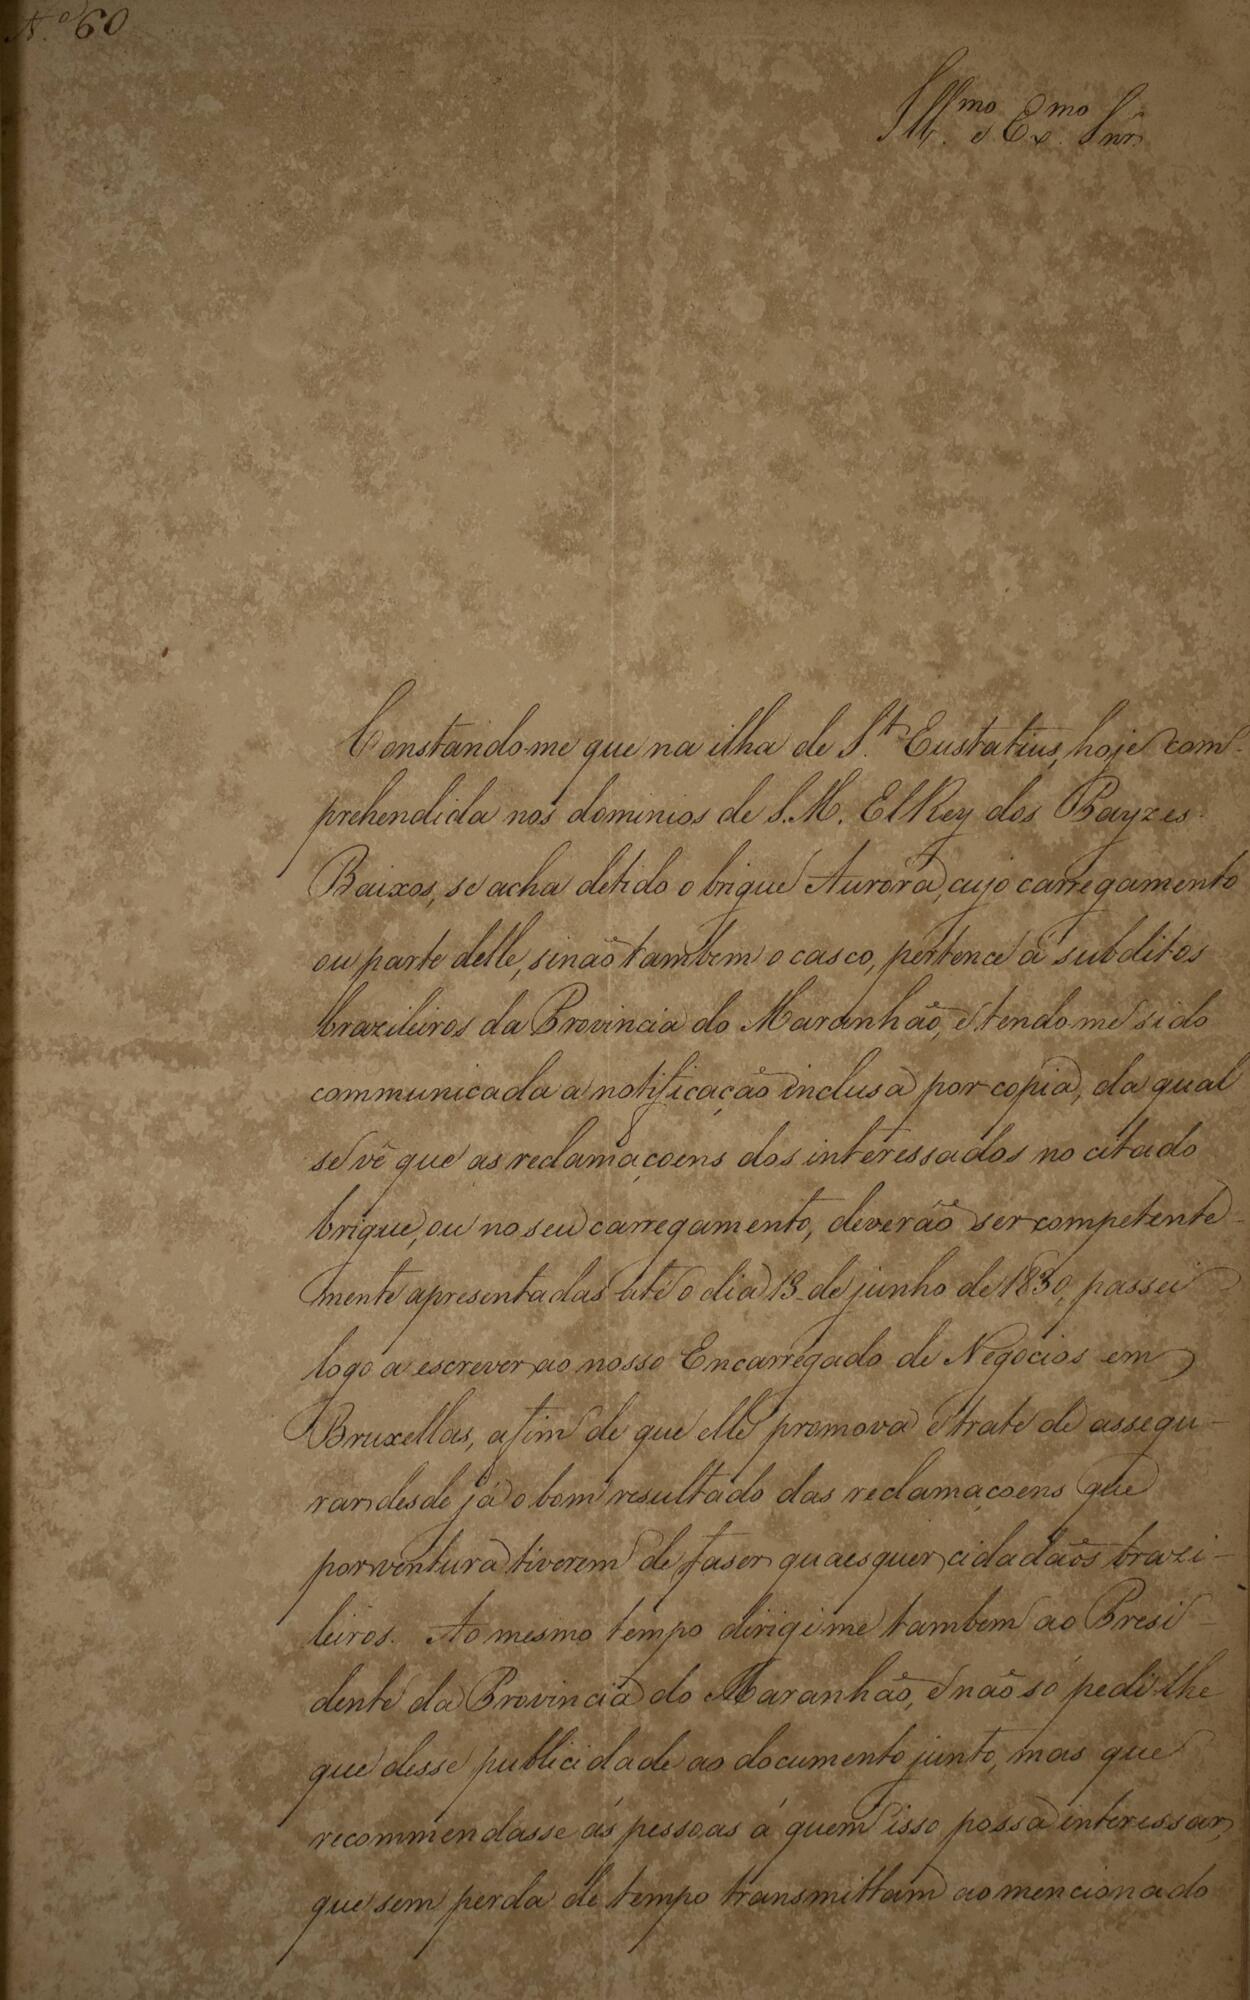 N.º 60
Ill.mo e Ex.mo Snr.
Constando-me que na ilha de S.t Eustatius, hoje com-
prehendida nos dominios de S.M. ElRey dos Payzes
Baixos, se acha detido o brigue Aurora, cujo carregamento
ou parte delle, sinão tambem o casco, pertence á subditos
brazileiros da Provincia do Maranhão, e tendo-me sido
communicada a notificação inclusa por copia, da qual
se vê que as reclamaçoens dos interessados no citado
brigue, ou no seu carregamento, deverão ser competente-
mente apresentadas até o dia 13 de junho de 1830, passei
logo a escrever ao nosso Encarregado de Negocios em
Bruxellas, afim de que elle promova e trate de assegu-
rar desde já o bom resultado das reclamaçoens que
porventura tiverem de faser quaesquer cidadãos brazi-
leiros. Ao mesmo tempo dirigi me tambem ao Presi-
dente da Provincia do Maranhão, e não só pedi-lhe
que desse publicidade ao documento junto, mas que
recommendasse ás pessoas á quem isso possa interessar,
que sem perda de tempo transmittam ao mencionado